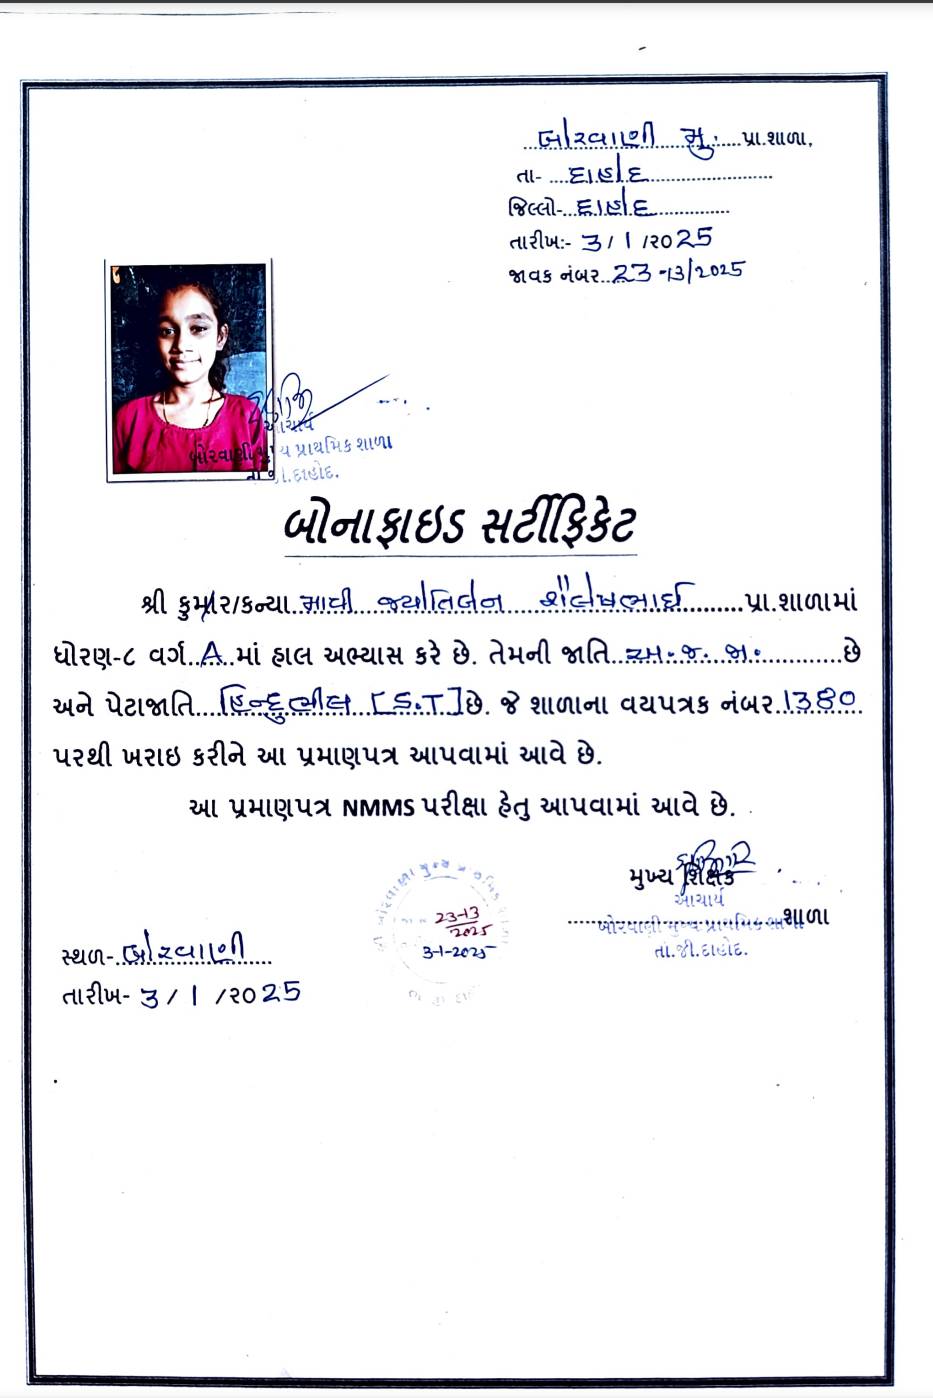 બોરવાણી મુ. પ્રા.શાળા,
તા- દાહોદ
જિલ્લો- દાહોદ
તારીખ:- 3/1/૨૦25
જાવક નંબર..23-13/2025
આચાર્ય
બોરવાણી મુખ્ય પ્રાથમિક શાળા
તા.જી.દાહોદ.
બોનાફાઇડ સર્ટીફિકેટ
શ્રી કુમાર/કન્યા..માવી જ્યોતિબેન શૈલેષભાઈ.........પ્રા.શાળામાં
ધોરણ-૮ વર્ગ..A..માં હાલ અભ્યાસ કરે છે. તેમની જાતિ..અ.જ.જા............છે
અને પેટાજાતિ....હિન્દુભીલ [S.T]છે. જે શાળાના વયપત્રક નંબર.1380
પરથી ખરાઇ કરીને આ પ્રમાણપત્ર આપવામાં આવે છે.
આ પ્રમાણપત્ર NMMS પરીક્ષા હેતુ આપવામાં આવે છે.
મુખ્ય શિક્ષક
આચાર્ય
બોરવાણી મુખ્ય પ્રાથમિક શાળા
શાળા
તા.જી.દાહોદ.
23-13
2025
3-1-2025
સ્થળ-બોરવાણી
તારીખ- 3/1/૨૦25